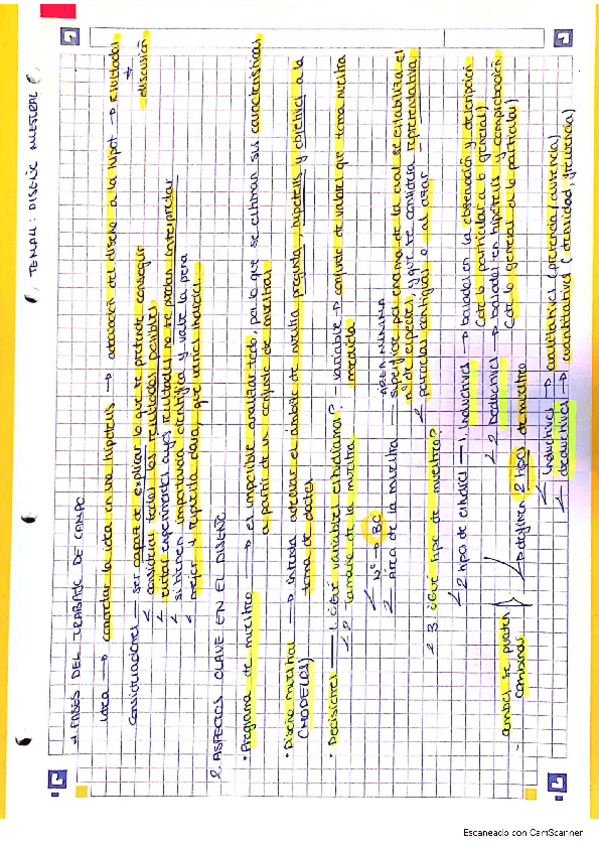 TEMA 4: DISEÑO MUESTRAL
1. FASES DEL TRABAJO DE CAMPO
Idea → concretar la idea en una hipótesis → adecuación del diseño a la hipót → resultados
↓
discusión
Consideraciones — ser capaz de explicar lo que se pretende conseguir
considerar todos los resultados posibles
evitar experimentos cuyos resultados no se puedan interpretar
si tienen importancia científica y valle la pena
mejor 1 respuesta clara, que varias
2. ASPECTOS CLAVE EN EL DISEÑO
· Programa de muestreo → es imposible analizar todo, por lo que se estiman sus características
a partir de un conjunto de muestras
· Diseño muestral → intenta adecuar el ámbito de nuestra pregunta, hipótesis y objetivos a la
(MODELOS) toma de datos
· Decisiones — 1. ¿Qué variables estudiamos? - variable → conjunto de valores que toma nuestra
medida
2. Tamaño de la muestra
Nº → BC
ÁREA MÍNIMA
Área de la muestra — superficie por encima de la cual se estabiliza el
nº de especies, y que se considera representativa
parcelas contiguas o al azar
3. ¿Qué tipo de muestreo?
2 tipos de estudios — 1. Inductivos → basados en la observación y descripción
(de lo particular a lo general)
2. Deductivos → basados en hipótesis y comprobación
(de lo general a lo particular)
ambos se pueden
combinar
→ definen 2 tipos de muestreo
inductivos → cualitativos (presencia/ausencia)
deductivos → cuantitativos (densidad, frecuencia)
Escaneado con CamScanner